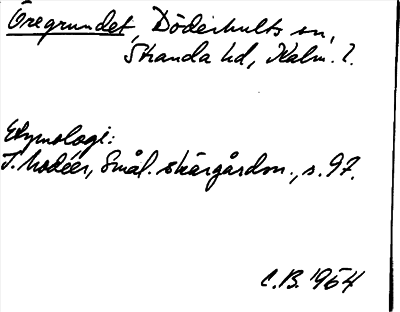 Öregrundet, Döderhults sn,
Stranda hd, Kalm. l.
Etymologi:
I. Modéer, Smål. skärgårdsn., s. 97.
C.B. 1964